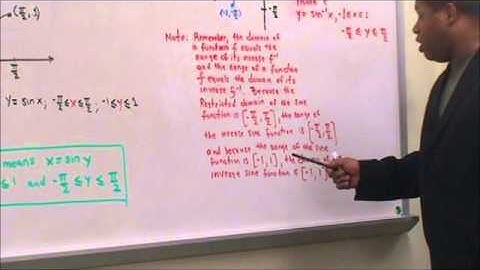 (π/2, 1)
π/2
y = sin x, -π/2 ≤ x ≤ π/2, -1 ≤ y ≤ 1
means x = sin y
≤ 1 and -π/2 ≤ y ≤ π/2
-π/2
y = sin⁻¹ x, -1 ≤ x ≤ 1
-π/2 ≤ y ≤ π/2
Note: Remember, the domain of
a function f equals the
range of its inverse f⁻¹
and the range of a function
f equals the domain of its
inverse f⁻¹. Because the
Restricted domain of the sine
function is [-π/2, π/2], the range of
the inverse sine function is [-π/2, π/2]
and because the range of the sine
function is [-1, 1], the
inverse sine function is [-1, 1]